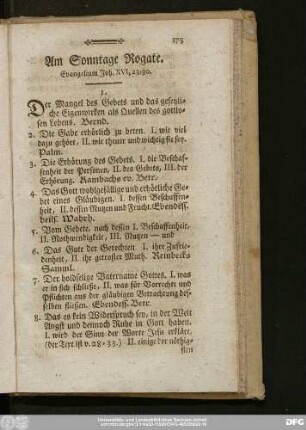 175
Am Sonntage Rogate.
Evangelium Joh. XVI, 23:30.
1.
Der Mangel des Gebets und das gesetzli-
che Eigenwirken als Quellen des gottlo-
sen Lebens. Bernd.
2. Die Gabe erhörlich zu beten. I. wie viel
dazu gehört. II. wie theuer und wichtig sie sey.
Palm.
3. Die Erhörung des Gebets. I. die Beschaf-
fenheit der Personen, II. des Gebets, III. der
Erhörung. Rambachs ev. Betr.
4. Das Gott wohlgefällige und erhörliche Ge-
bet eines Gläubigen. I. dessen Beschaffen-
heit, II. dessen Nutzen und Frucht. Ebendess.
heils. Wahrh.
5. Vom Gebete, nach dessen I. Beschaffenheit,
II. Nothwendigkeit, III. Nutzen — und
6. Das Gute der Gerechten I. ihre Zufrie-
denheit, II. ihr getroster Muth. Reinbecks
Samml.
7. Der holdselige Vatername Gottes. I. was
er in sich schliesse, II. was für Vorrechte und
Pflichten aus der gläubigen Betrachtung des-
selben fliessen. Ebendess. Betr.
8. Das es kein Widerspruch sey, in der Welt
Angst und dennoch Ruhe in Gott haben.
I. wird der Sinn der Worte Jesu erklärt.
(der Text ist v. 28-33.) II. einige der nöthig-
sten
Universitäts- und Landesbibliothek Sachsen-Anhalt
DFG